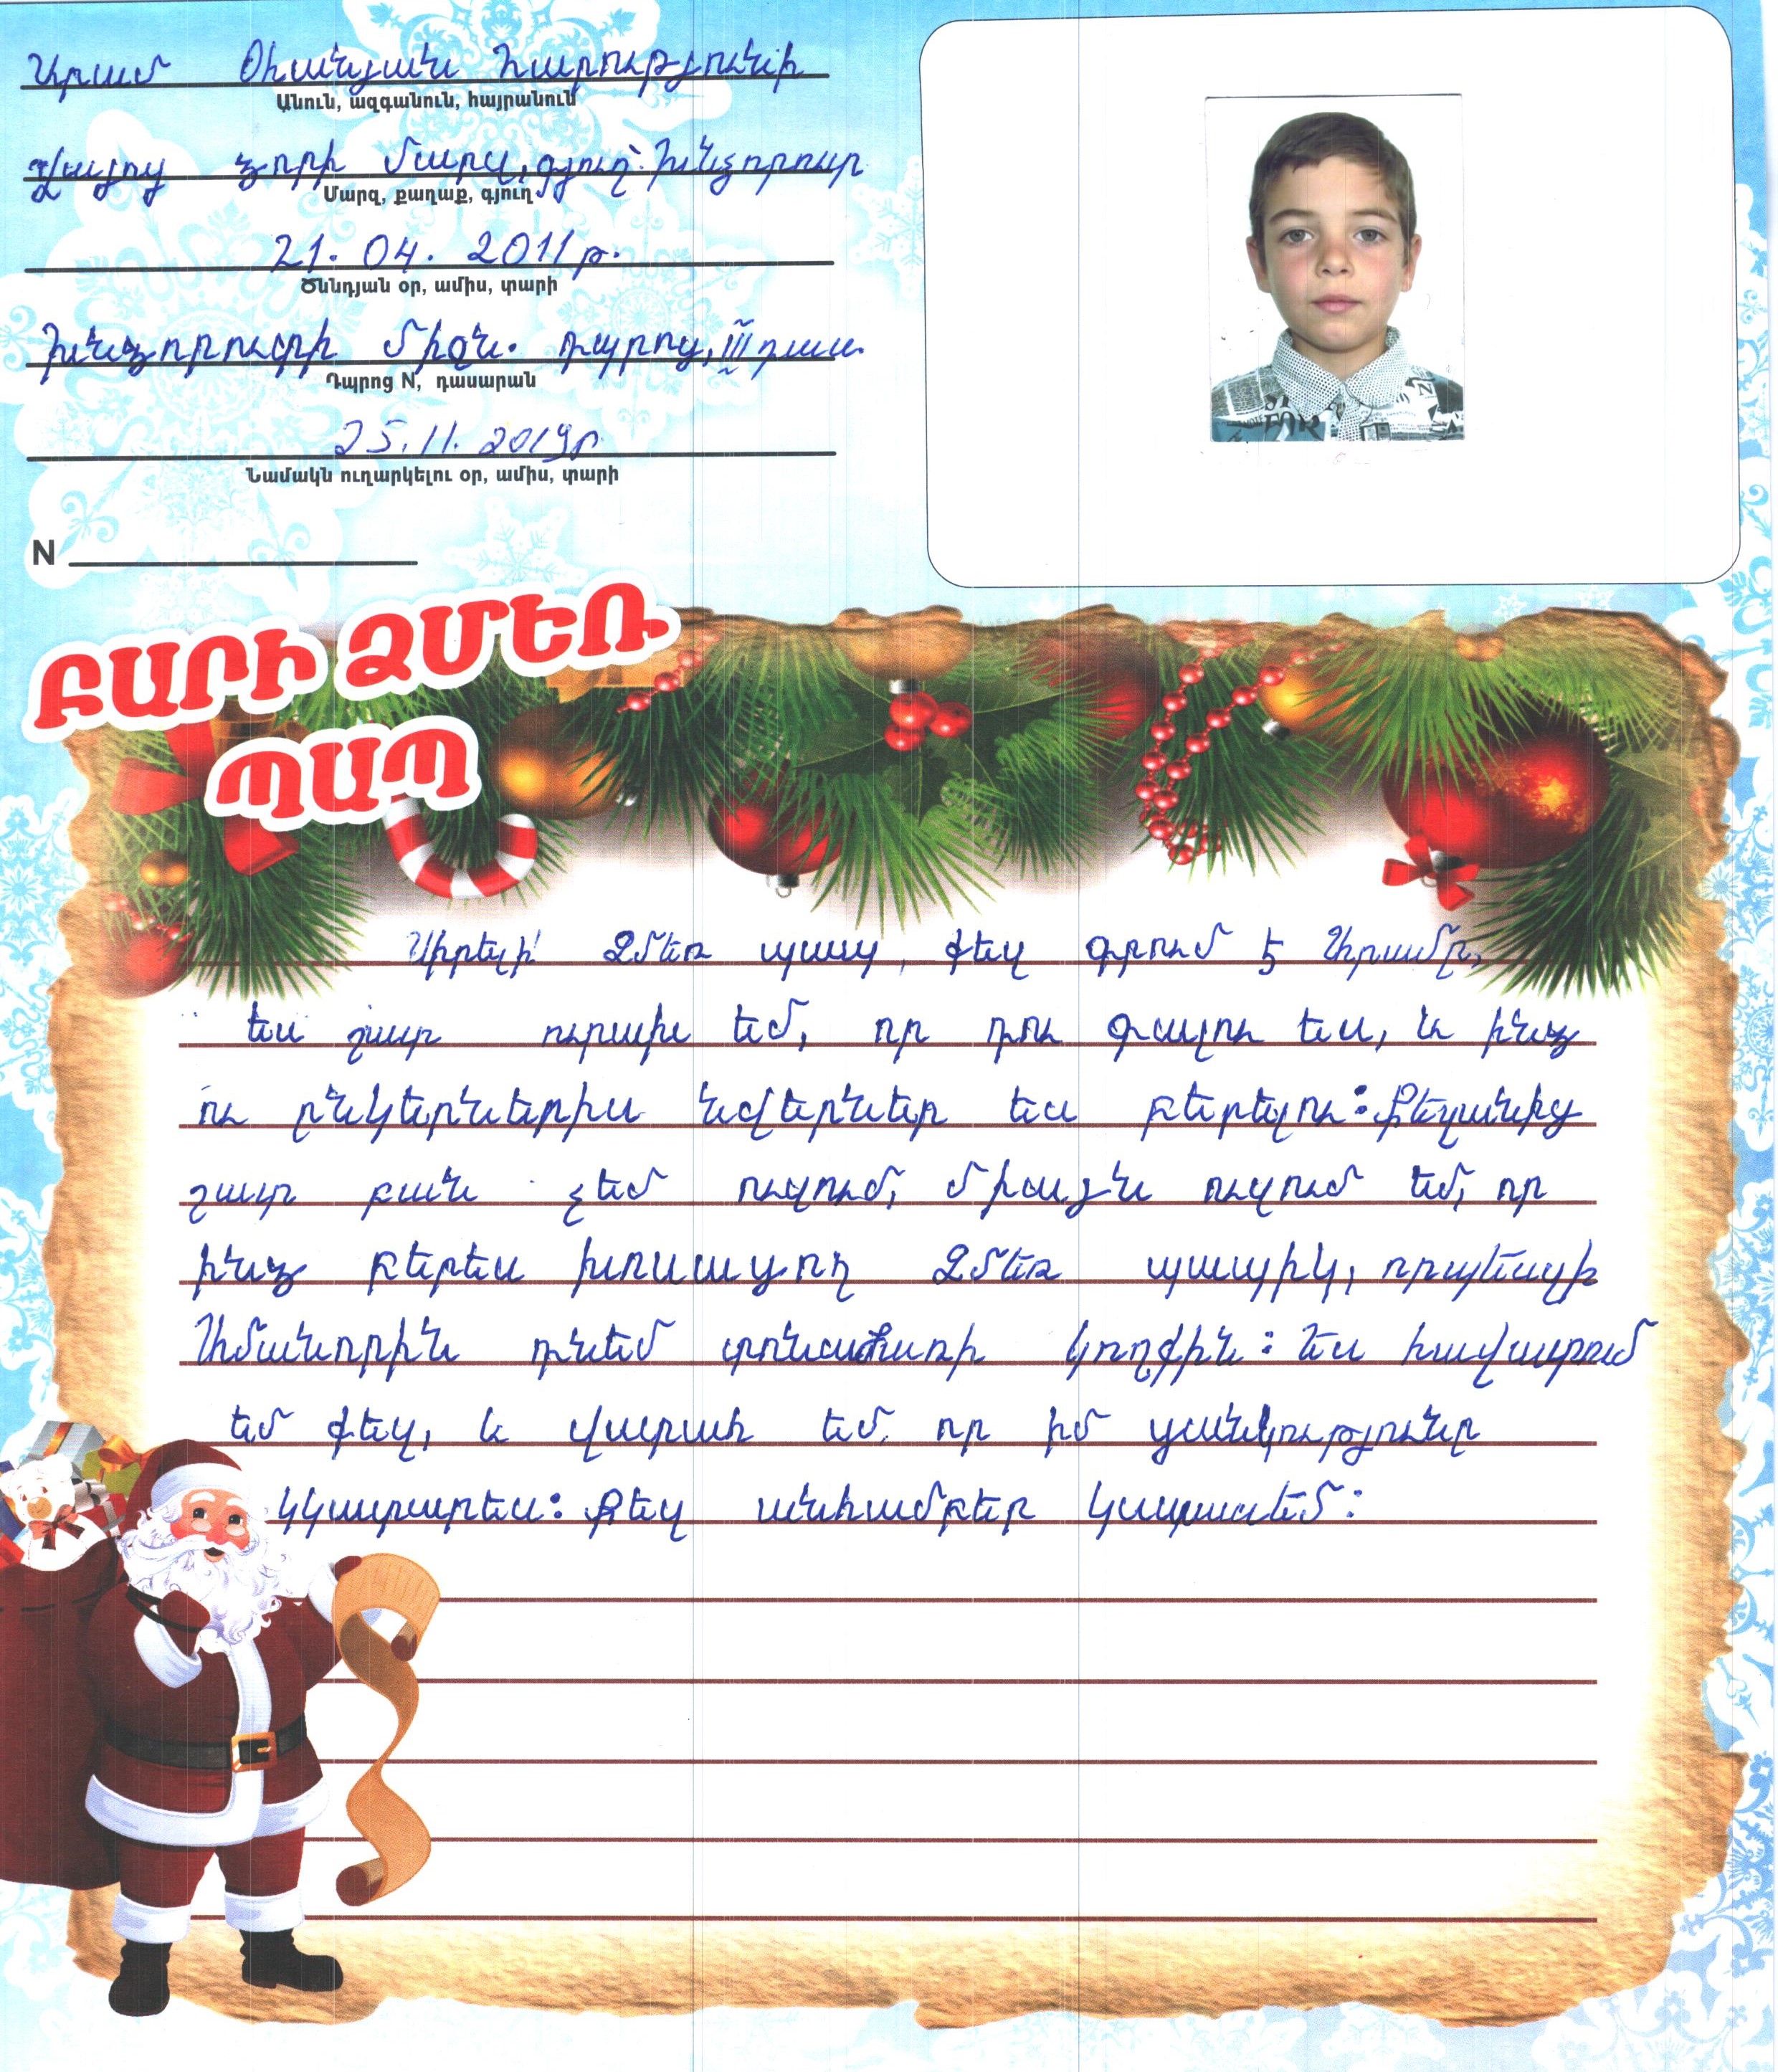 Արամ Օհանյան Հարությունի
Անուն, ազգանուն, հայրանուն
Վայոց ձորի մարզ, գյուղ՝ Խնձորուտ
Մարզ, քաղաք, գյուղ
21. 04. 2011թ.
Ծննդյան օր, ամիս, տարի
Խնձորուտի միջն. դպրոց, III դաս.
Դպրոց N, դասարան
25.11. 2019թ
Նամակն ուղարկելու օր, ամիս, տարի
N
ԲԱՐԻ ՁՄԵՌ
ՊԱՊ
Սիրելի՛ Ձմեռ պապ, քեզ գրում է Արամը,
ես շատ ուրախ եմ, որ դու գալու ես, և ինձ
ու ընկերներիս նվերներ ես բերելու: Քեզանից
շատ բան չեմ ուզում, միայն ուզում եմ, որ
ինձ բերես խոսացող Ձմեռ պապիկ, որպեսզի
Ամանորին դնեմ տոնածառի կողքին: Ես հավատում
եմ քեզ, և վստահ եմ, որ իմ ցանկությունը
կկատարես: Քեզ անհամբեր կսպասեմ: